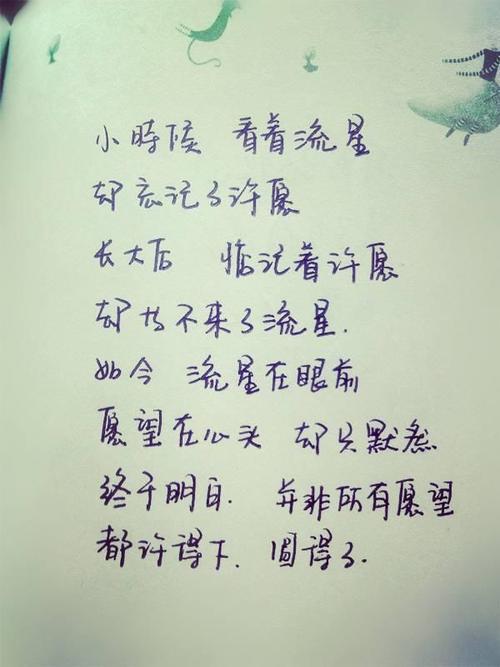 小時候 看着流星
却忘记了许愿
长大后 惦记着许愿
却等不来了流星.
如今 流星在眼前
愿望在心头 却只默然
终于明白. 并非所有愿望
都许得下. 圆得了.